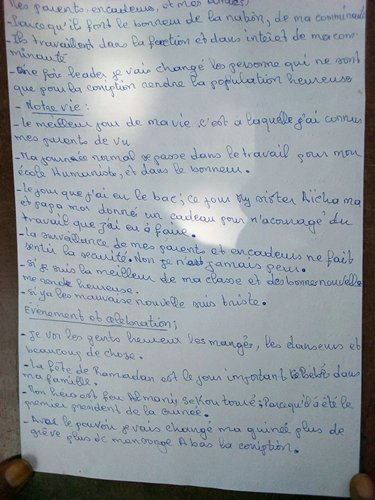 les parents, encadeurs, et mes
-Parce qu'il font le bonneur de la nation, de ma comminauté
-Ils travaillent dans la faction et dans intéret de ma com-
minauté
-One for leader je vais changé les personne qui ne sont
que pour la coription rendre la population heureuse
- Notre vie :
- le meilleur jour de ma vie c'est à laquelle j'ai connus
mes parents de vu
- Ma journée normal se passe dans le travail pour mon
école Humaniste, et dans le bonneur.
- le jour que j'ai eu le bac; ce jour My sister Aïcha ma
et papa mon donné un cadeau pour m'acouragé du
travail que j'ai eu à faire.
- la surveillance de mes parents et encadeurs me fait
sentir la sécurité. Non je n'ait jamais peur.
- Si je suis la meilleur de ma classe et des bonne nouvelle
me rende heureuse.
- Si ya les mauvaise nouvelle suis triste.
Evènement et célébration;
- Je vois les gents heureux les mangés, les danseurs et
beaucoup de chose.
- La fête de Ramadan est le jour important dans
ma famille.
- Mon heros est feu Almamy Sekou touré; Parcequ'il a été le
premier president de la Guinée.
- Avec le pouvoir je vais changé ma guinée plus de
grève plus de mansonge Abas la coription.